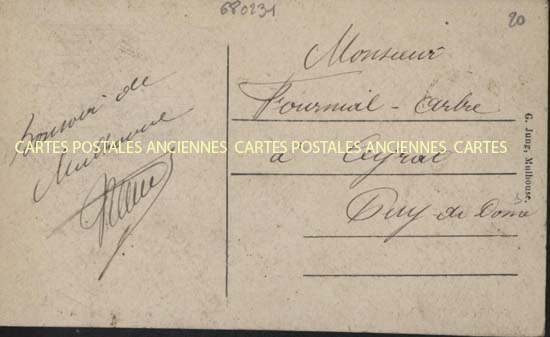 680231
20
Bonsoir de
Mulhouse
Monsieur
Fournial-Arbre
à Ceyrat
Puy de Dome
G. Jung, Mulhouse.
CARTES POSTALES ANCIENNES CARTES POSTALES ANCIENNES CARTES